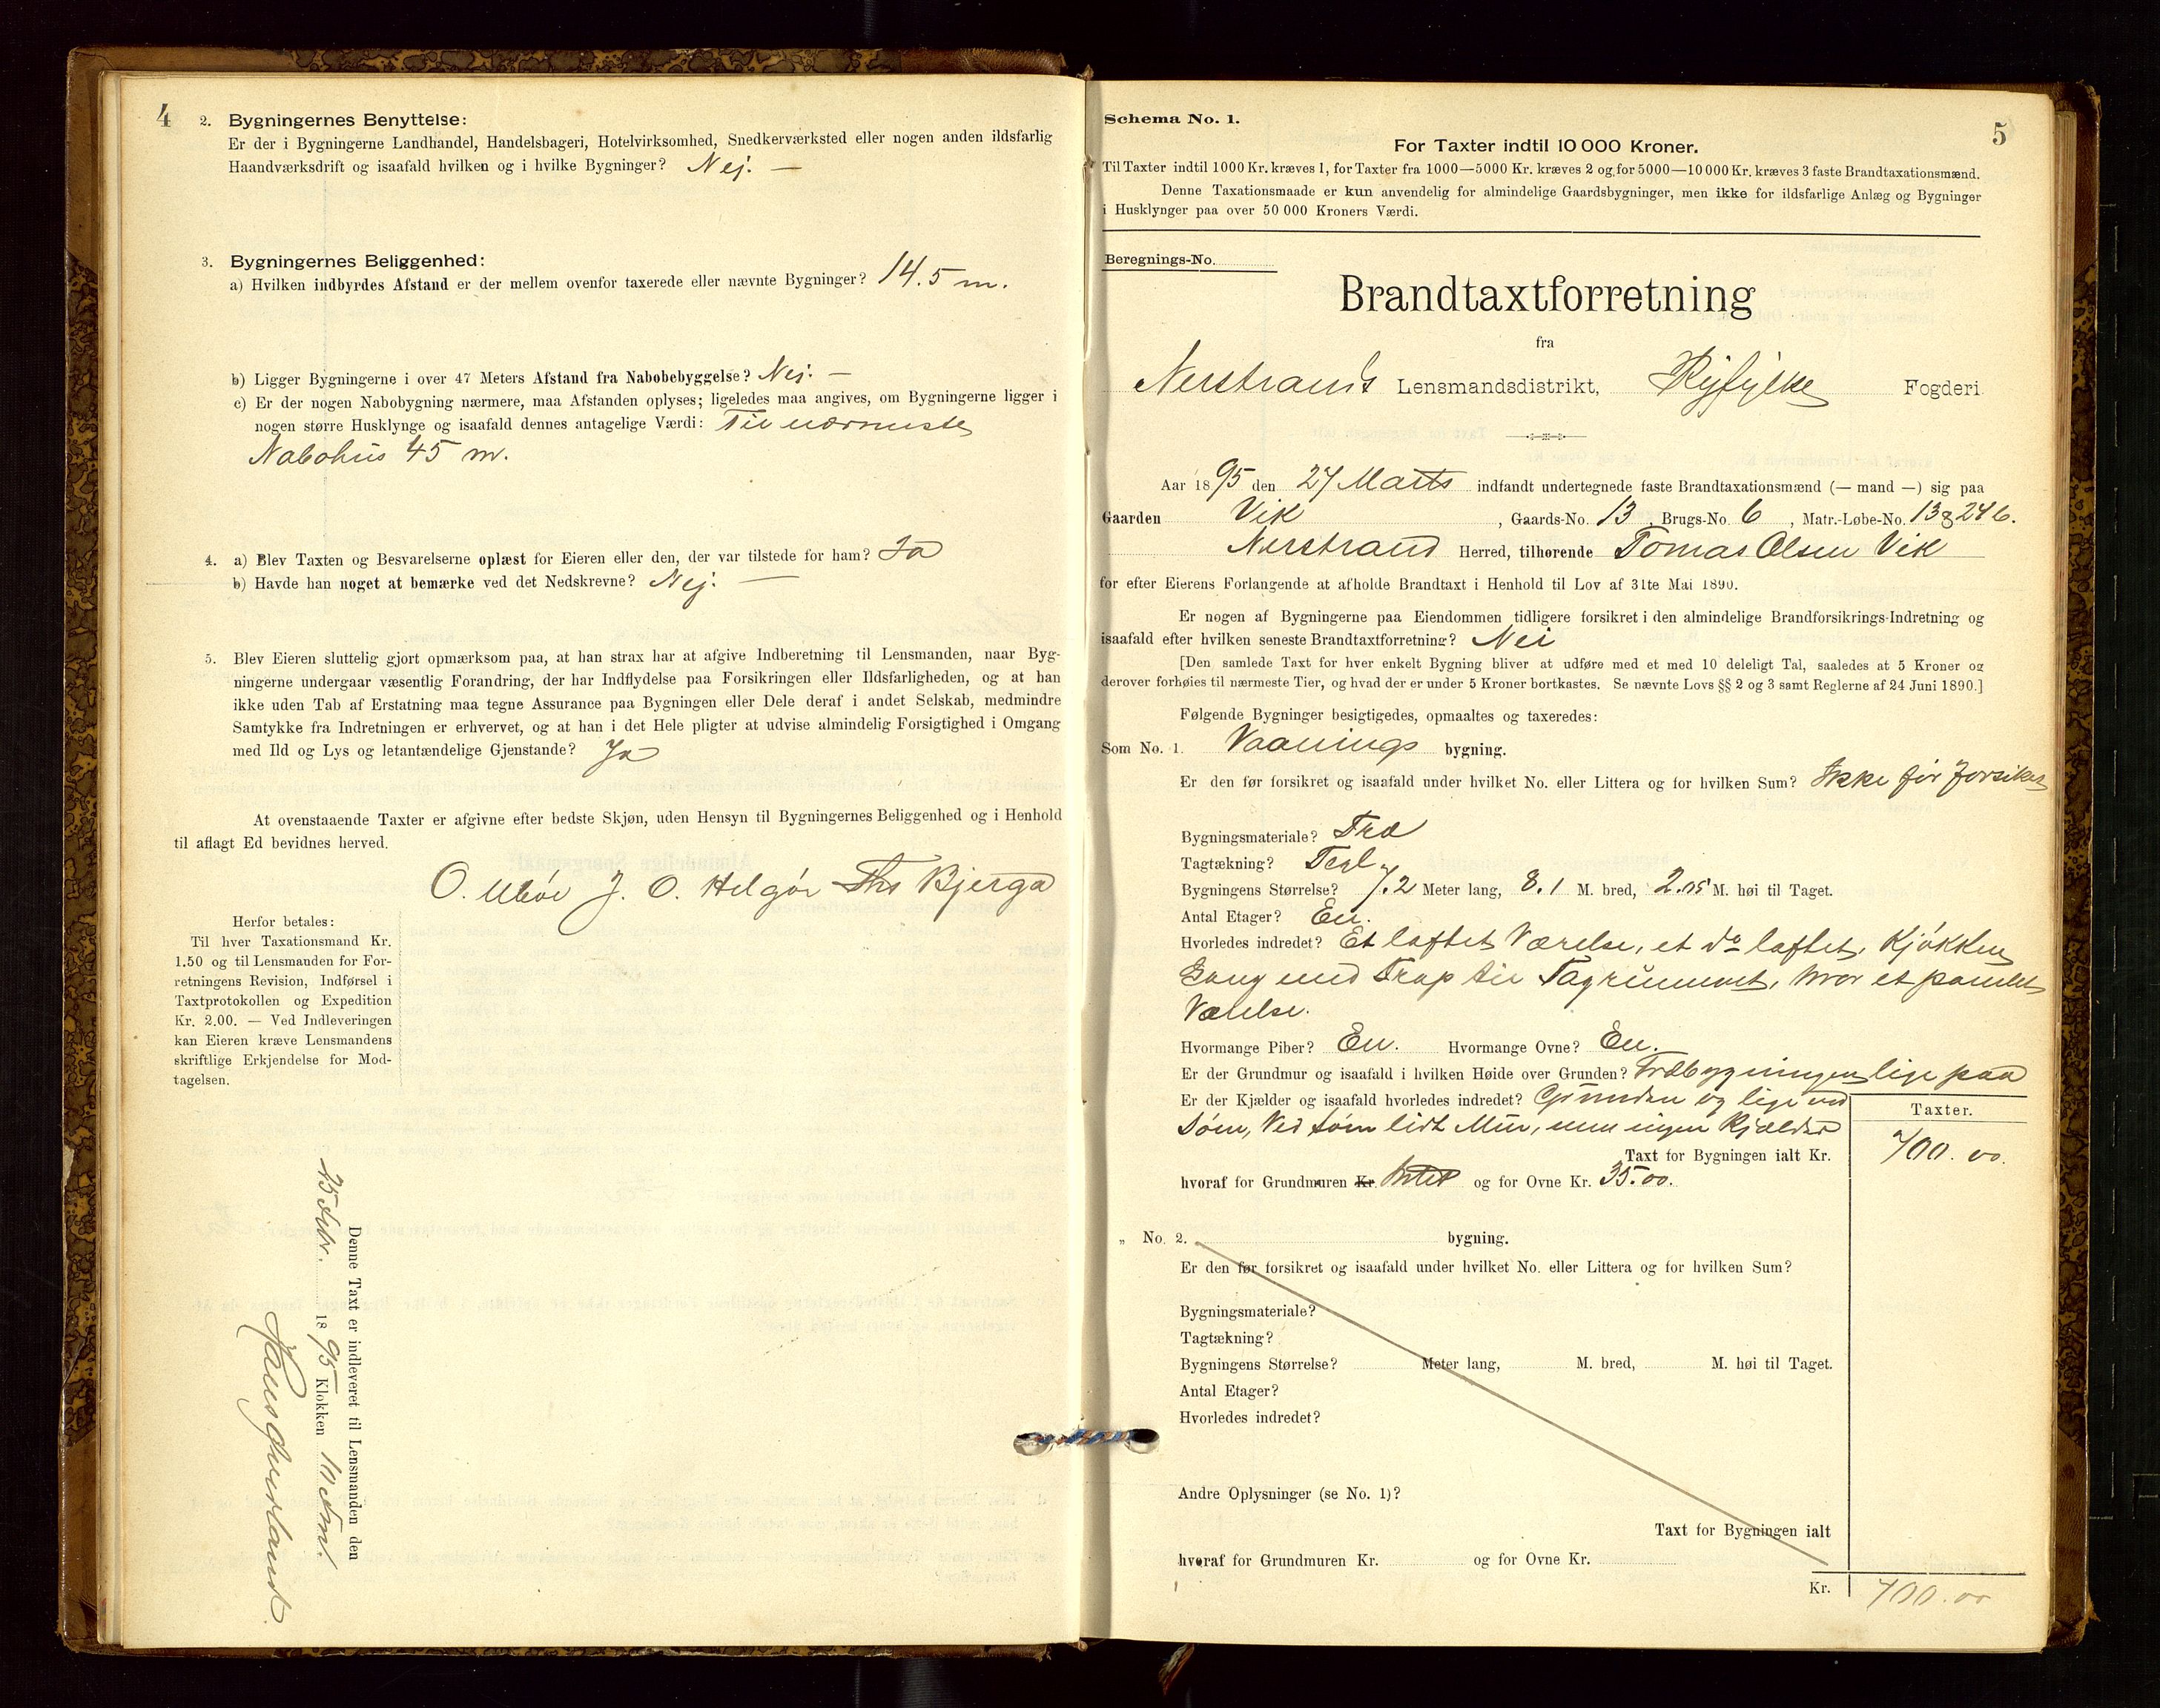 4
2. Bygningernes Benyttelse:
Er der i Bygningerne Landhandel, Handelsbageri, Hotelvirksomhed, Snedkerværksted eller nogen anden ildsfarlig
Haandværksdrift og isaafald hvilken og i hvilke Bygninger? Nej. —
3. Bygningernes Beliggenhed:
a) Hvilken indbyrdes Afstand er der mellem ovenfor taxerede eller nævnte Bygninger? 14.5 m.
b) Ligger Bygningerne i over 47 Meters Afstand fra Nabobebyggelse? Nei. —
c) Er der nogen Nabobygning nærmere, maa Afstanden oplyses; ligeledes maa angives, om Bygningerne ligger i
nogen større Husklynge og isaafald dennes antagelige Værdi: Til nærmeste
Nabohus 45 m.
4. a) Blev Taxten og Besvarelserne oplæst for Eieren eller den, der var tilstede for ham? Ja
b) Havde han noget at bemærke ved det Nedskrevne? Nej. —
5. Blev Eieren sluttelig gjort opmærksom paa, at han strax har at afgive Indberetning til Lensmanden, naar Byg-
ningerne undergaar væsentlig Forandring, der har Indflydelse paa Forsikringen eller Ildsfarligheden, og at han
ikke uden Tab af Erstatning maa tegne Assurance paa Bygningen eller Dele deraf i andet Selskab, medmindre
Samtykke fra Indretningen er erhvervet, og at han i det Hele pligter at udvise almindelig Forsigtighed i Omgang
med Ild og Lys og letantændelige Gjenstande? Ja
At ovenstaaende Taxter er afgivne efter bedste Skjøn, uden Hensyn til Bygningernes Beliggenhed og i Henhold
til aflagt Ed bevidnes herved.
O. Ubøe J. O. Helgøe Ths Bjerga
Herfor betales:
Til hver Taxationsmand Kr.
1.50 og til Lensmanden for For-
retningens Revision, Indførsel i
Taxtprotokollen og Expedition
Kr. 2.00. — Ved Indleveringen
kan Eieren kræve Lensmandens
skriftlige Erkjendelse for Mod-
tagelsen.
Denne Taxt er indleveret til Lensmanden den
18 95 Klokken
5
Schema No. 1.
For Taxter indtil 10 000 Kroner.
Til Taxter indtil 1000 Kr. kræves 1, for Taxter fra 1000—5000 Kr. kræves 2 og for 5000—10 000 Kr. kræves 3 faste Brandtaxationsmænd.
Denne Taxationsmaade er kun anvendelig for almindelige Gaardsbygninger, men ikke for ildsfarlige Anlæg og Bygninger
i Husklynger paa over 50 000 Kroners Værdi.
Beregnings-No.
Brandtaxtforretning
fra
Nerstrands Lensmandsdistrikt, Ryfylke Fogderi
Aar 1895 den 27 Marts indfandt undertegnede faste Brandtaxationsmænd (— mand —) sig paa
Gaarden Vik, Gaards-No. 13, Brugs-No. 6, Matr.-Løbe-No. 13 & 24 b.
Nerstrand Herred, tilhørende Tomas Olsen Vik
for efter Eierens Forlangende at afholde Brandtaxt i Henhold til Lov af 31te Mai 1890.
Er nogen af Bygningerne paa Eiendommen tidligere forsikret i den almindelige Brandforsikrings-Indretning og
isaafald efter hvilken seneste Brandtaxtforretning? Nei
[Den samlede Taxt for hver enkelt Bygning bliver at udføre med et med 10 deleligt Tal, saaledes at 5 Kroner og
derover forhøies til nærmeste Tier, og hvad der er under 5 Kroner bortkastes. Se nævnte Lovs §§ 2 og 3 samt Reglerne af 24 Juni 1890.]
Følgende Bygninger besigtigedes, opmaaltes og taxeredes:
Som No. 1. Vaanings bygning.
Er den før forsikret og isaafald under hvilket No. eller Littera og for hvilken Sum? Ikke før forsikret
Bygningsmateriale? Træ
Tagtækning? Tegl
Bygningens Størrelse? 7.2 Meter lang, 8.1 M. bred, 2.15 M. høi til Taget.
Antal Etager? En.
Hvorledes indredet? Et loftet Værelse, et do loftet, Kjøkken
Gang med Trap til Tagrummet, hvor et panelet
Værelse.
Hvormange Piber? En. Hvormange Ovne? En.
Er der Grundmur og isaafald i hvilken Høide over Grunden? Træbygningen lige paa
Er der Kjælder og isaafald hvorledes indredet? Grunden og lige ved
Søen, Ved Søen lidt Mur, men ingen Kjælder
Taxter.
Taxt for Bygningen ialt Kr. 700.00.
hvoraf for Grundmuren Kr. Intet og for Ovne Kr. 35.00.
„ No. 2. bygning.
Er den før forsikret og isaafald under hvilket No. eller Littera og for hvilken Sum?
Bygningsmateriale?
Tagtækning?
Bygningens Størrelse? Meter lang, M. bred, M. høi til Taget.
Antal Etager?
Hvorledes indredet?
Andre Oplysninger (se No. 1)?
Taxt for Bygningen ialt
hvoraf for Grundmuren Kr. og for Ovne Kr.
Kr. 700.00